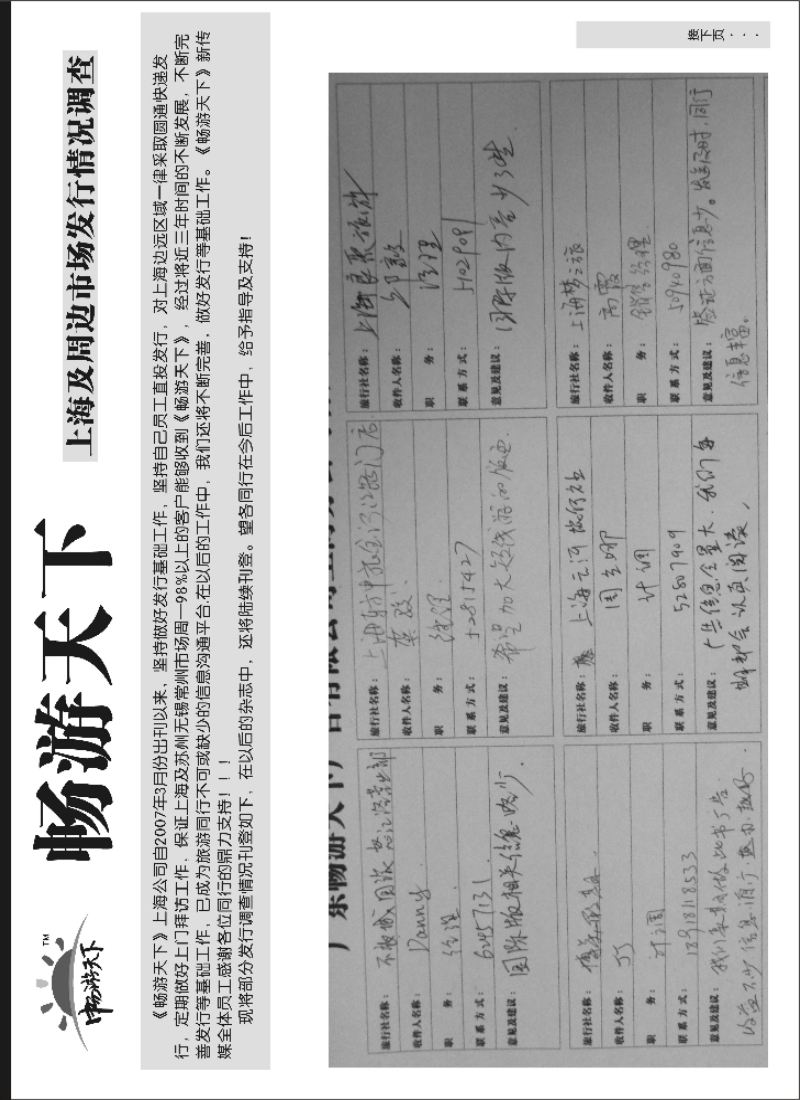 畅游天下
TM
畅游天下
上海及周边市场发行情况调查
《畅游天下》上海公司自2007年3月份出刊以来，坚持做好发行基础工作，坚持自己员工直投发行，对上海边远区域一律采取圆通快递发
行，定期做好上门拜访工作，保证上海及苏州无锡常州市场周一98%以上的客户能够收到《畅游天下》，经过将近三年时间的不断发展，不断完
善发行等基础工作，已成为旅游同行不可或缺少的信息沟通平台.在以后的工作中，我们还将不断完善，做好发行等基础工作。《畅游天下》新传
媒全体员工感谢各位同行的鼎力支持！！！
现将部分发行调查情况刊登如下，在以后的杂志中，还将陆续刊登。望各同行在今后工作中，给予指导及支持！
旅行社名称：
收件人名称：Danny
职 务：经理
联系方式：62457131
意见及建议：国际版相关信息缺少.
旅行社名称：
收件人名称：
职 务：经理
联系方式：52815427
意见及建议：希望加大短线游的版面
旅行社名称：上海良聚旅游
收件人名称：邹敏
职 务：经理
联系方式：51029091
意见及建议：国际版内容少了些.
旅行社名称：
收件人名称：JJ
职 务：计调
联系方式：18918118533
意见及建议：
旅行社名称：上海云河旅行社
收件人名称：周立娜
职 务：计调
联系方式：52807909
意见及建议：广告信息含量大，我们每
期都会认真阅读，
旅行社名称：上海梦之旅
收件人名称：高霞
职 务：销售经理
联系方式：50940980
意见及建议：签证方面信息少。发至及时，同行
信息丰富。
接下页...